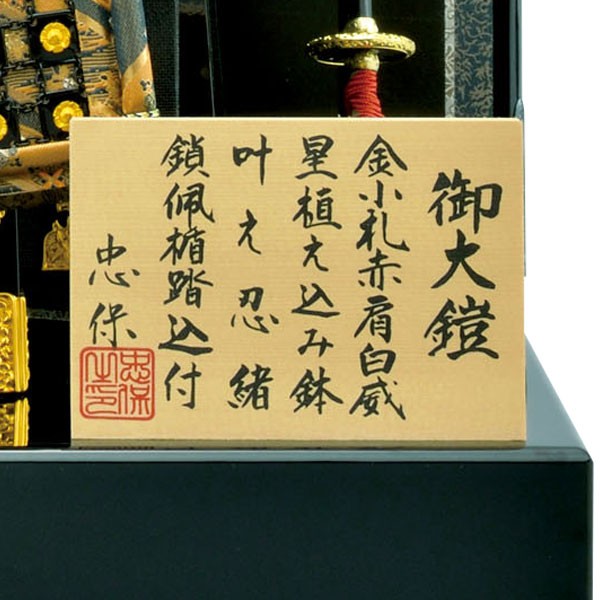 御大鎧
金小札赤肩白威
星植え込み鉢
叶え忍緒
鎖佩楯踏込付
忠保
忠保之印